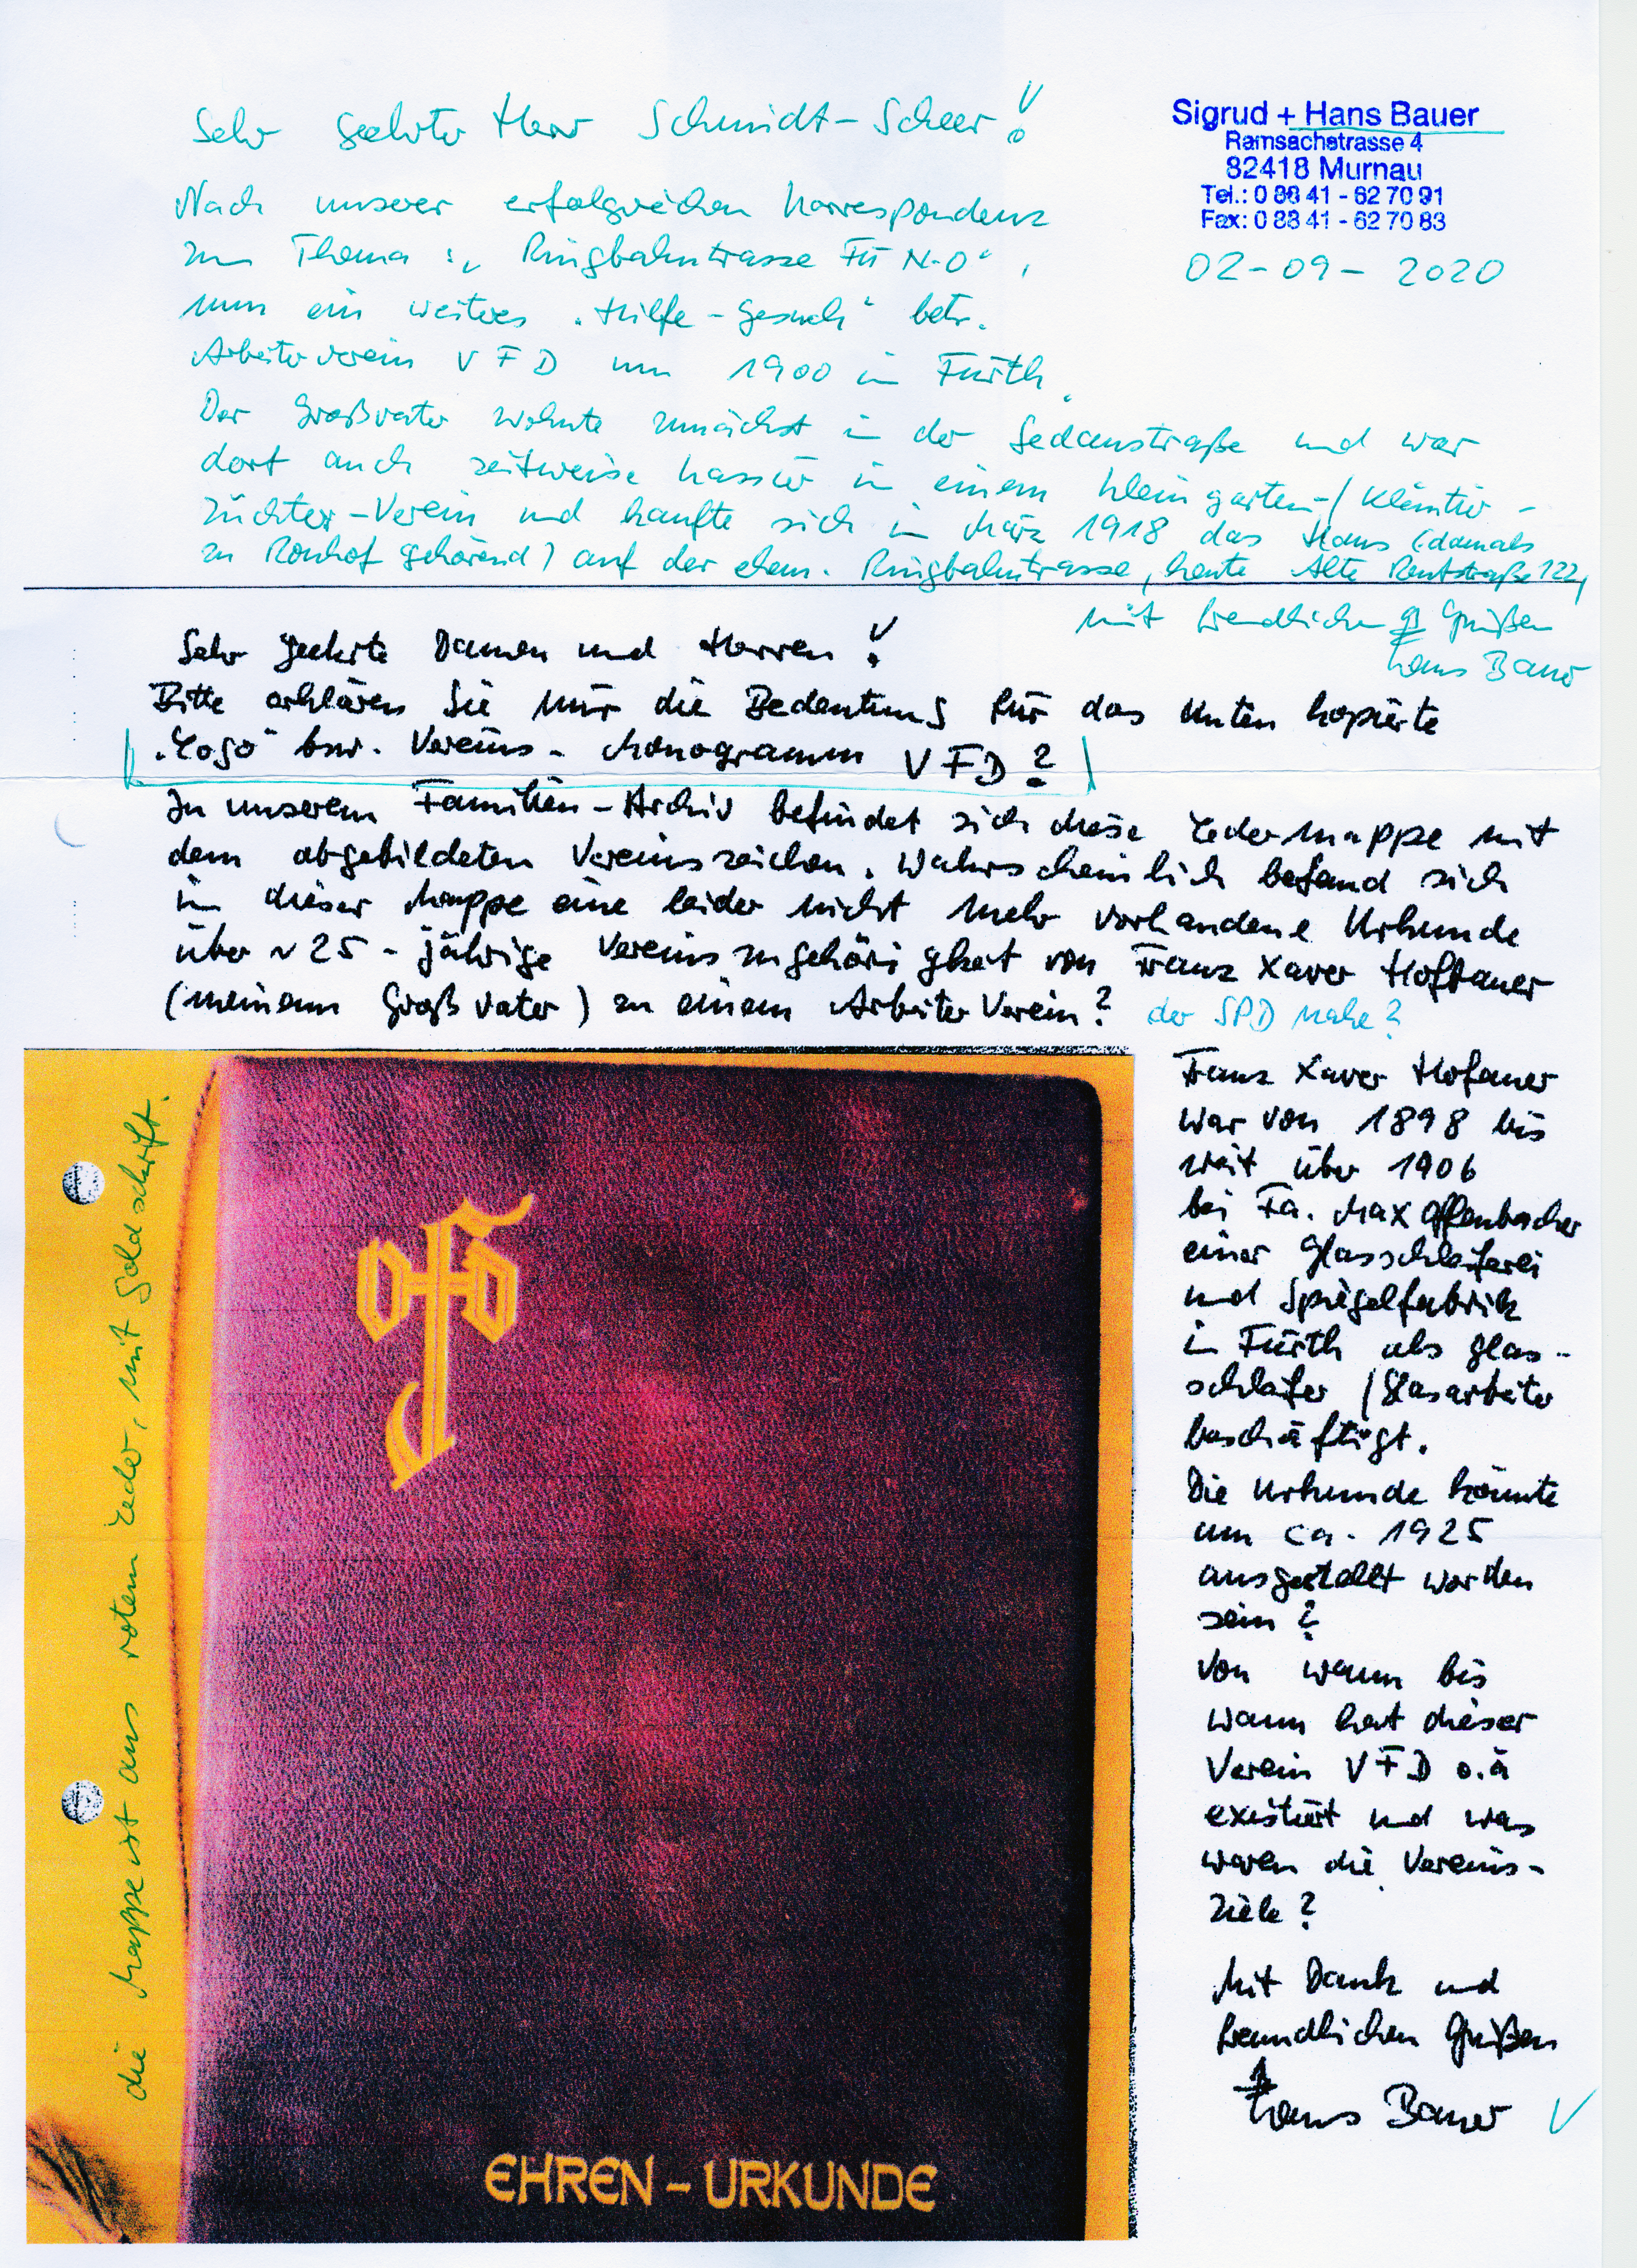 Sehr geehrter Herr Schmidt-Scheer!
Sigrud + Hans Bauer
Ramsachstrasse 4
82418 Murnau
Tel.: 0 88 41 - 62 70 91
Fax: 0 88 41 - 62 70 83
02-09-2020
Nach unserer erfolgreichen Korrespondenz
zum Thema: „Ringbahntrasse FÜ N-O“,
nun ein weiteres „Hilfe-Gesuch“ betr.
Arbeiterverein VFD um 1900 in Fürth.
Der Großvater wohnte zunächst in der Sedanstraße und war
dort auch zeitweise Kassier in einem Kleingarten-/Kleintier-
züchter-Verein und kaufte sich im März 1918 das Haus (damals
zu Ronhof gehörend) auf der ehem. Ringbahntrasse, heute Alte Reutstraße 122,
mit freundlichen Grüßen
Hans Bauer
Sehr geehrte Damen und Herren!
Bitte erklären Sie mir die Bedeutung für das unten kopierte
„Logo“ bzw. Vereins-Monogramm VFD?
In unserem Familien-Archiv befindet sich diese Ledermappe mit
dem abgebildeten Vereinszeichen. Wahrscheinlich befand sich
in dieser Mappe eine leider nicht mehr vorhandene Urkunde
über ~25-jährige Vereinszugehörigkeit von Franz Xaver Hofbauer
(meinem Großvater) zu einem Arbeiter Verein? der SPD nahe?
die Mappe ist aus rotem Leder, mit Goldschrift.
EHREN-URKUNDE
Franz Xaver Hofauer
war von 1898 bis
weit über 1906
bei Fa. Max Offenbacher
einer Glasschleiferei
und Spiegelfabrik
in Fürth als Glas-
schleifer / Glasarbeiter
beschäftigt.
Die Urkunde könnte
um ca. 1925
ausgestellt worden
sein?
Von wann bis
wann hat dieser
Verein VFD o.ä
existiert und was
waren die Vereins-
ziele?
Mit Dank und
freundlichen Grüßen
Hans Bauer